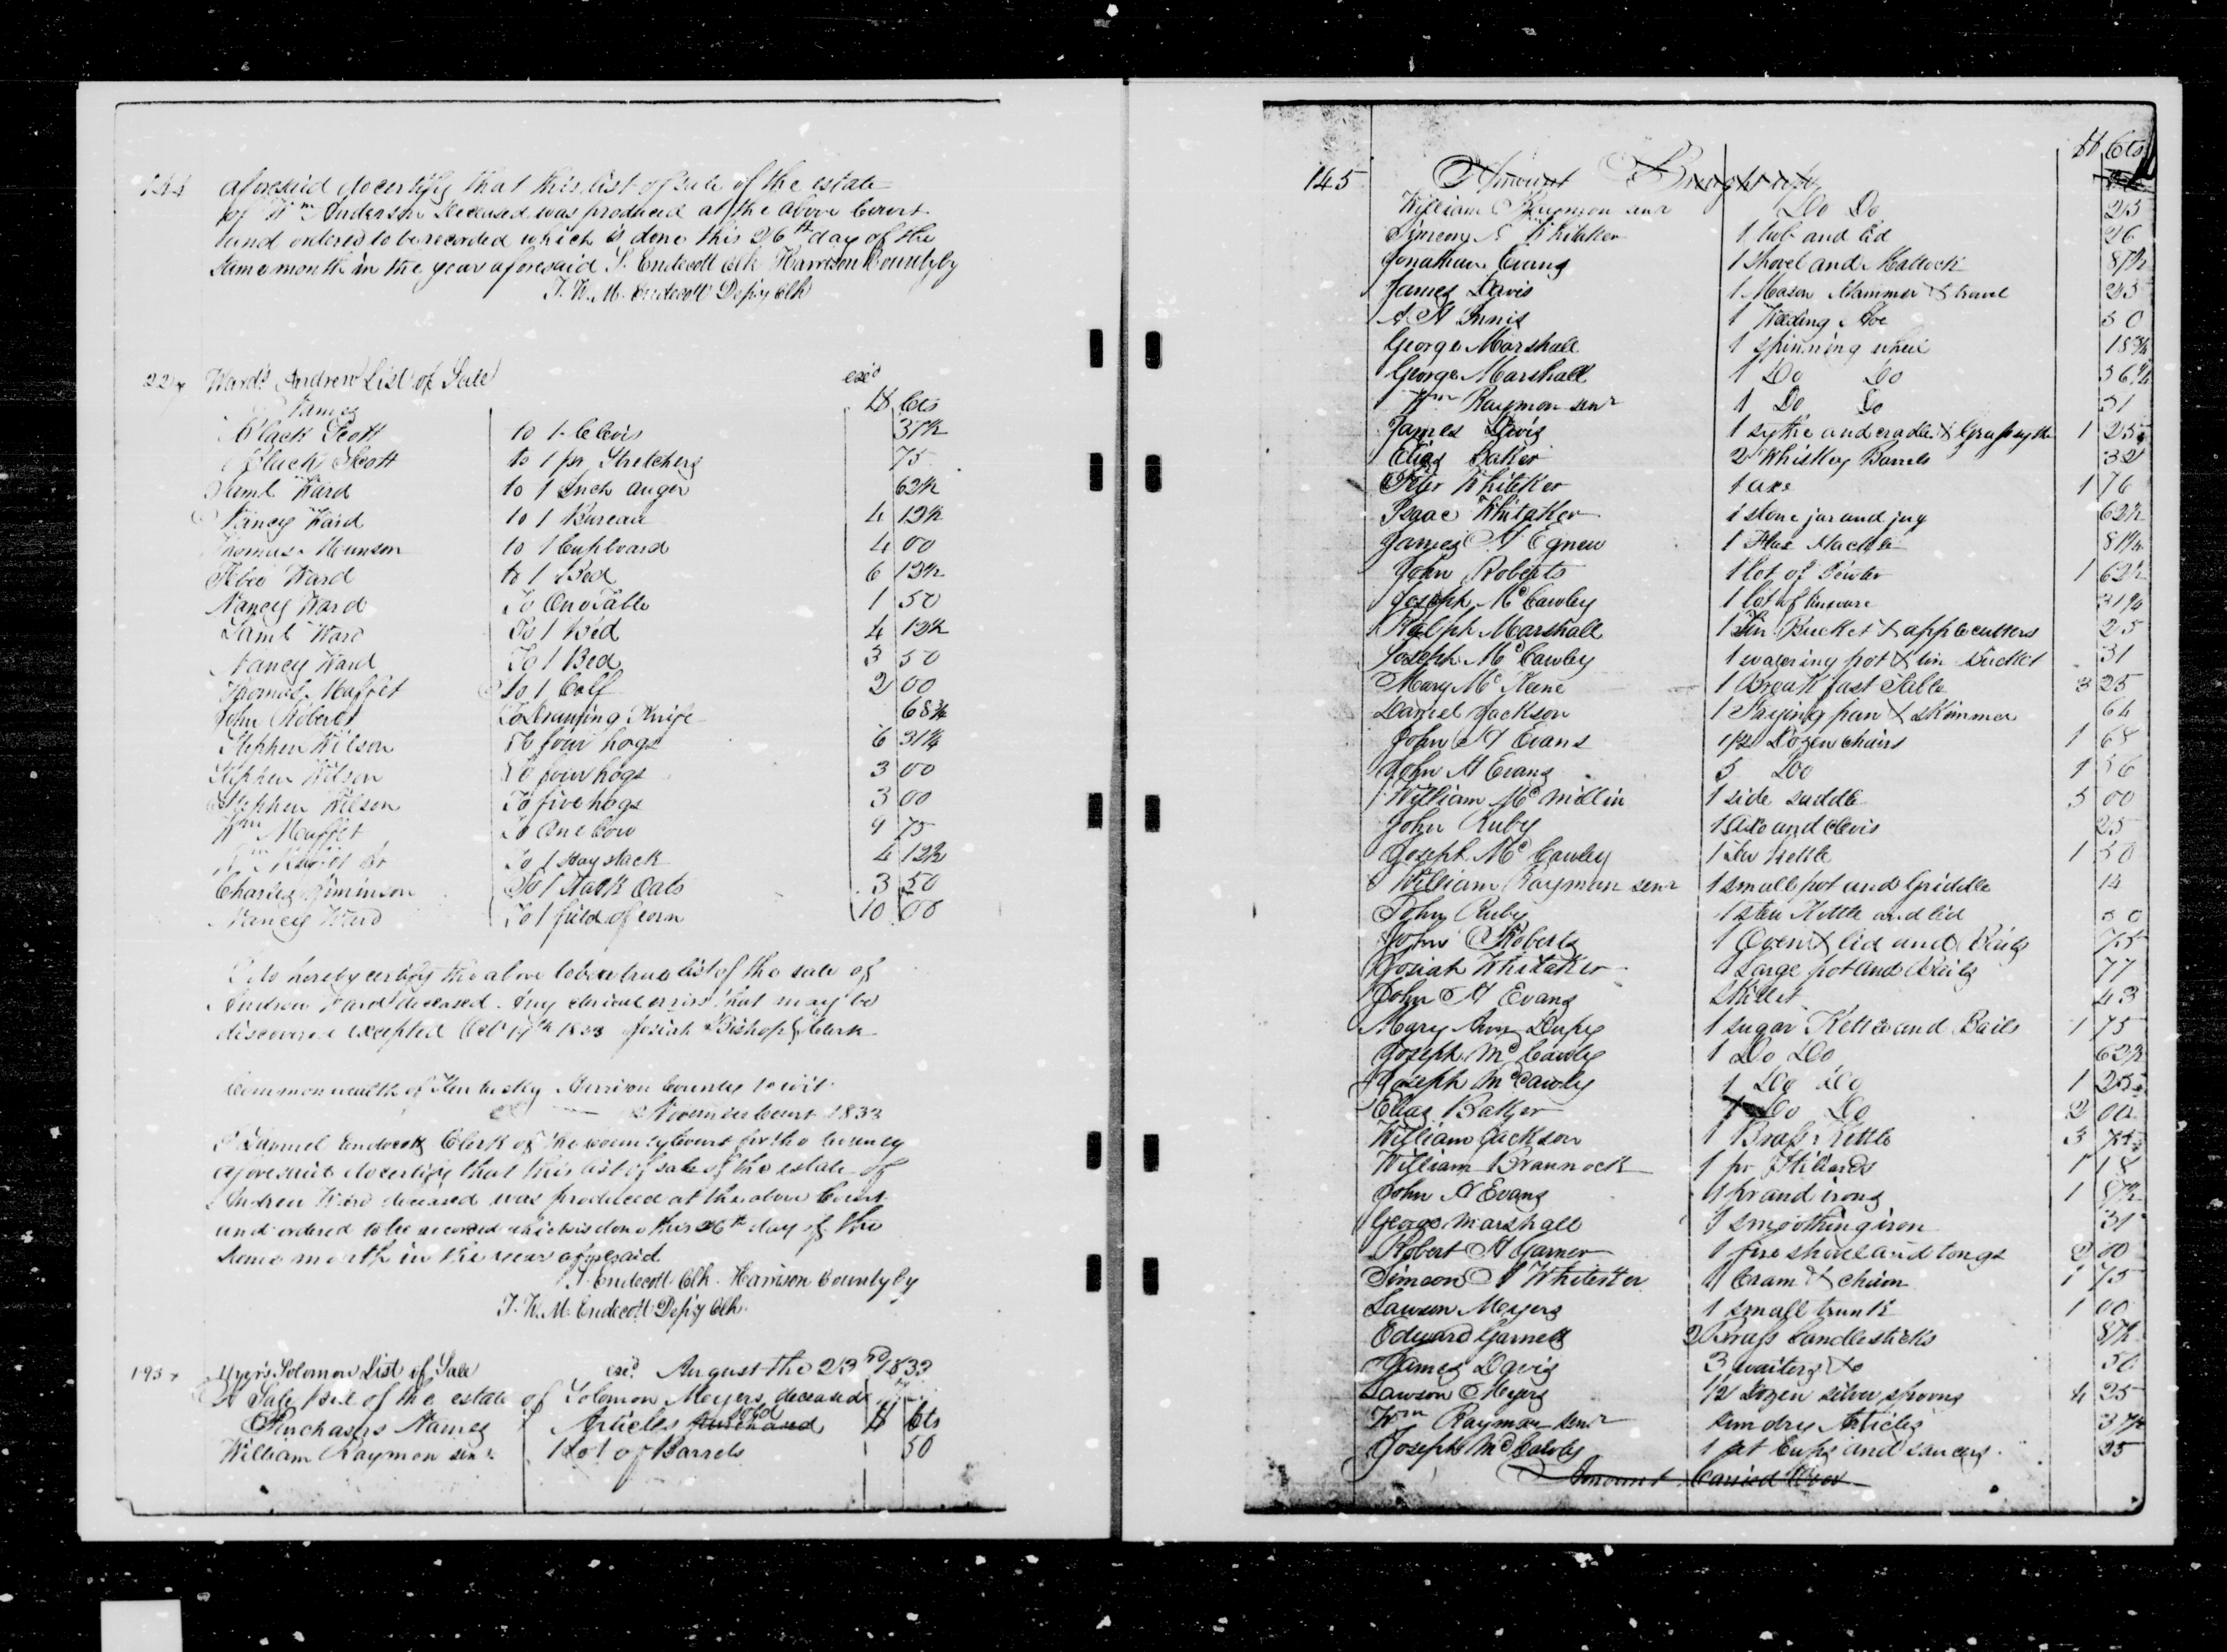 144 aforesaid do certify that this list of sale of the estate
of Wm Anderson deceased was produced at the above Court
and ordered to be recorded which is done this 26th day of the
same month in the year aforesaid S. Endecott Clk Harrison County by
J. W. M. Endecott Depy Clk
Ward's Andrew List of Sale exd
Names $ Cts
Black Scott to 1 Clevis 37½
Black Scott to 1 pr Stretchers 75
Saml Ward to 1 Inch auger 62½
Nancy Ward to 1 Bureau 4 12½
Thomas Munson to 1 Cupboard 4 00
Ward to 1 Bed 6 12½
Nancy Ward To One Table 1 50
Saml Ward To 1 Bed 4 12½
Nancy Ward To 1 Bed 3 50
Thomas Muffet to 1 Calf 2 00
John Robert To Drawing Knife 68¾
Stephen Wilson To four hogs 6 31¼
Stephen Wilson To four hogs 3 00
Stephen Wilson To five hogs 3 00
Wm Muffet To One Cow 9 75
To 1 Hay stack 4 12½
Charles Jiminson To 1 Stack Oats 3 50
Nancy Ward To 1 field of corn 10 00
I do hereby certify the above to be a true list of the sale of
Andrew Ward deceased. Any clerical errors that may be
discovered excepted Oct 17th 1833 Josiah Bishop Clerk
Commonwealth of Kentucky Harrison County to wit
November Court 1833
I Samuel Endecott Clerk of the county Court for the County
aforesaid do certify that this list of sale of the estate of
Andrew Ward deceased was produced at the above Court
and ordered to be recorded which is done this 26th day of the
same month in the year aforesaid
S. Endecott Clk Harrison County by
J. W. M. Endecott Depy Clk
193 Myers Solomon List of Sale exd August the 23rd 1833
A Sale bill of the estate of Solomon Meyers deceased
Purchasers Names Articles purchased sold $ Cts
William Raymon senr 1 Lot of Barrels 50
$ Cts
145 Amount Brought up
William Raymon senr Do Do 25
Simeon Whitaker 1 tub and lid 26
Jonathan Evans 1 Shovel and Mattock 87½
James Davis 1 Mason Hammer & trowel 25
A H Innis 1 Weeding Hoe 50
George Marshall 1 spinning wheel 18¾
George Marshall 1 Do Do 56¼
Wm Raymon senr 1 Do Do 31
James Davis 1 sythe and cradle & Grass sythe 1 25
Elias Baker 2 Whiskey Barrels 32
Whiteker 1 axe 1 76
Isaac Whitaker 1 stone jar and jug 62½
James H Egnew 1 Flax Hackle 81¼
John Roberts 1 lot of Pewter 1 62½
Joseph McCawley 1 lot of tinware 31¼
Ralph Marshall 1 Tin Bucket & apple cutters 25
Joseph McCawley 1 watering pot & tin Bucket 31
Mary McKeene 1 Breakfast Table 3 25
Daniel Jackson 1 Frying pan & skimmer 64
John H Evans 1/2 Dozen chairs 1 68
John H Evans 5 Do 1 56
William McMillin 1 side saddle 5 00
John Ruby 1 axe and clevis 25
Joseph McCawley 1 Tea Kettle 1 50
William Rayman senr 1 small pot and Griddle 14
John Ruby 1 stew Kettle and lid 50
John Roberts 1 Oven & lid and Bails 75
Josiah Whitaker 1 Large pot and Bails 77
John H Evans Skillet 43
Mary Ann Dupy 1 sugar Kettle and Bails 1 75
Joseph McCawley 1 Do Do 62½
Joseph McCawley 1 Do Do 1 25
Elias Baker 1 Do Do 2 00
William Jackson 1 Brass Kettle 3
William Brannock 1 pr Stiliards 1 18
John H Evans 1 pr and irons 1 87½
George Marshall 1 smoothing iron 31
Robert H Garner 1 fire shovel and tongs 2 00
Simeon Whiteker 1 Cram & churn 1 75
Lawson Meyers 1 small trunk 1 00
Edward Garnett 2 Brass Candlesticks 87½
James Davis 3 waiters & 50
Lawson Meyers 1/2 Dozen silver spoons 4 25
Wm Rayman senr sundry Articles 37½
Joseph McCawley 1 set Cups and saucers 25
Amount Carried Over